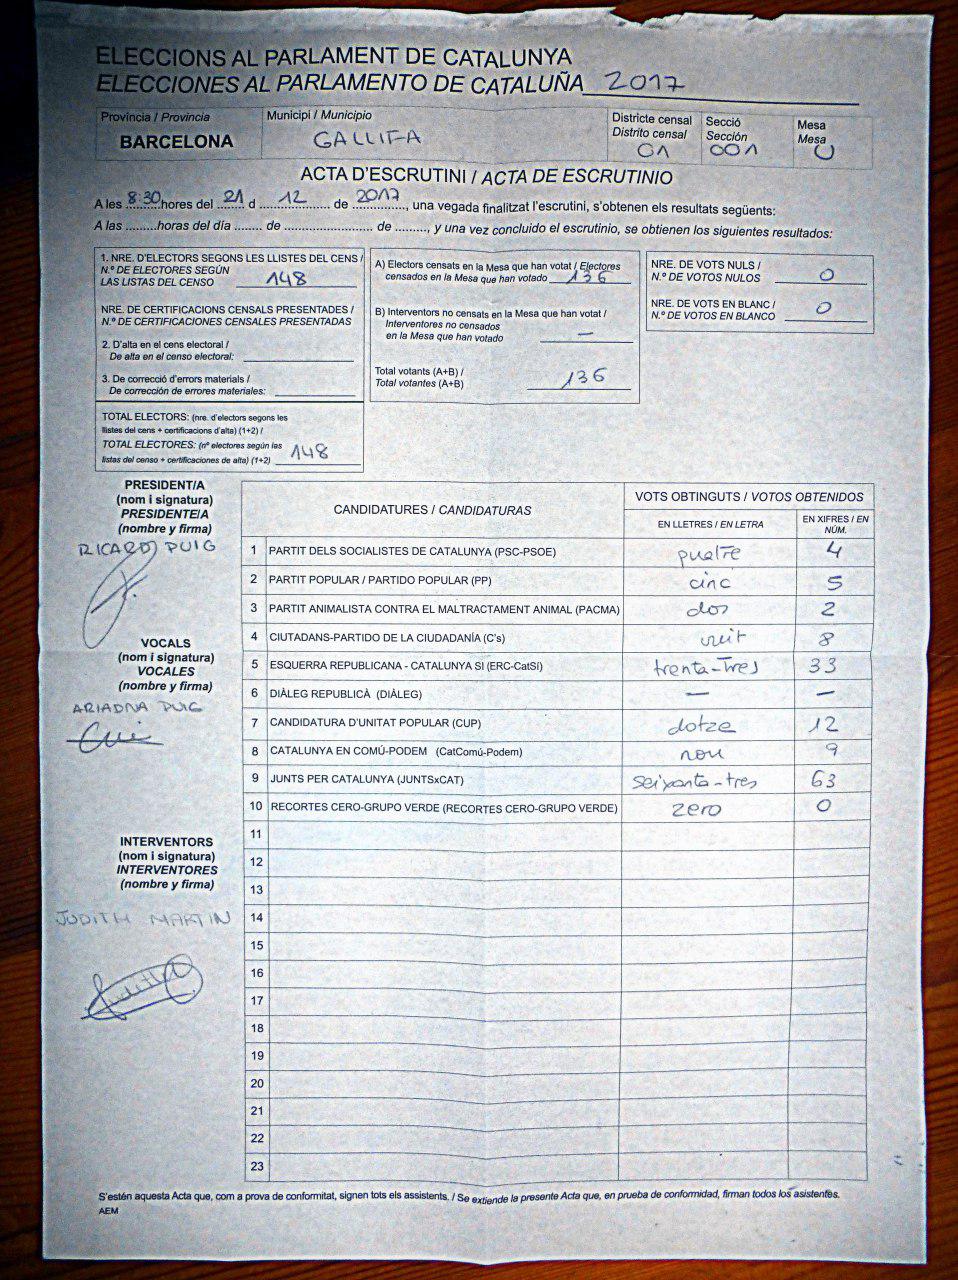 ELECCIONS AL PARLAMENT DE CATALUNYA
ELECCIONES AL PARLAMENTO DE CATALUÑA 2017
Província / Provincia
BARCELONA
Municipi / Municipio
GALLIFA
Districte censal
Distrito censal
01
Secció
Sección
001
Mesa
Mesa
U
ACTA D'ESCRUTINI / ACTA DE ESCRUTINIO
A les 8:30 hores del 21 d 12 de 2017, una vegada finalitzat l'escrutini, s'obtenen els resultats següents:
A las .........horas del día ........ de ........................ de ........., y una vez concluido el escrutinio, se obtienen los siguientes resultados:
1. NRE. D'ELECTORS SEGONS LES LLISTES DEL CENS /
N.º DE ELECTORES SEGÚN
LAS LISTAS DEL CENSO 148
NRE. DE CERTIFICACIONS CENSALS PRESENTADES /
N.º DE CERTIFICACIONES CENSALES PRESENTADAS
2. D'alta en el cens electoral /
De alta en el censo electoral:
3. De correcció d'errors materials /
De corrección de errores materiales:
TOTAL ELECTORS: (nre. d'electors segons les
llistes del cens + certificacions d'alta) (1+2) /
TOTAL ELECTORES: (nº electores según las
listas del censo + certificaciones de alta) (1+2) 148
A) Electors censats en la Mesa que han votat / Electores
censados en la Mesa que han votado 136
B) Interventors no censats en la Mesa que han votat /
Interventores no censados
en la Mesa que han votado —
Total votants (A+B) /
Total votantes (A+B) 136
NRE. DE VOTS NULS /
N.º DE VOTOS NULOS 0
NRE. DE VOTS EN BLANC /
N.º DE VOTOS EN BLANCO 0
PRESIDENT/A
(nom i signatura)
PRESIDENTE/A
(nombre y firma)
RICARD PUIG
VOCALS
(nom i signatura)
VOCALES
(nombre y firma)
ARIADNA PUIG
INTERVENTORS
(nom i signatura)
INTERVENTORES
(nombre y firma)
JUDITH MARTIN
CANDIDATURES / CANDIDATURAS
VOTS OBTINGUTS / VOTOS OBTENIDOS
EN LLETRES / EN LETRA
EN XIFRES / EN
NÚM.
1 PARTIT DELS SOCIALISTES DE CATALUNYA (PSC-PSOE) quatre 4
2 PARTIT POPULAR / PARTIDO POPULAR (PP) cinc 5
3 PARTIT ANIMALISTA CONTRA EL MALTRACTAMENT ANIMAL (PACMA) dos 2
4 CIUTADANS-PARTIDO DE LA CIUDADANÍA (C's) vuit 8
5 ESQUERRA REPUBLICANA - CATALUNYA SI (ERC-CatSí) trenta-Tres 33
6 DIÀLEG REPUBLICÀ (DIÀLEG) — —
7 CANDIDATURA D'UNITAT POPULAR (CUP) dotze 12
8 CATALUNYA EN COMÚ-PODEM (CatComú-Podem) nou 9
9 JUNTS PER CATALUNYA (JUNTSxCAT) seixanta-tres 63
10 RECORTES CERO-GRUPO VERDE (RECORTES CERO-GRUPO VERDE) zero 0
11
12
13
14
15
16
17
18
19
20
21
22
23
S'estén aquesta Acta que, com a prova de conformitat, signen tots els assistents. / Se extiende la presente Acta que, en prueba de conformidad, firman todos los asistentes.
AEM